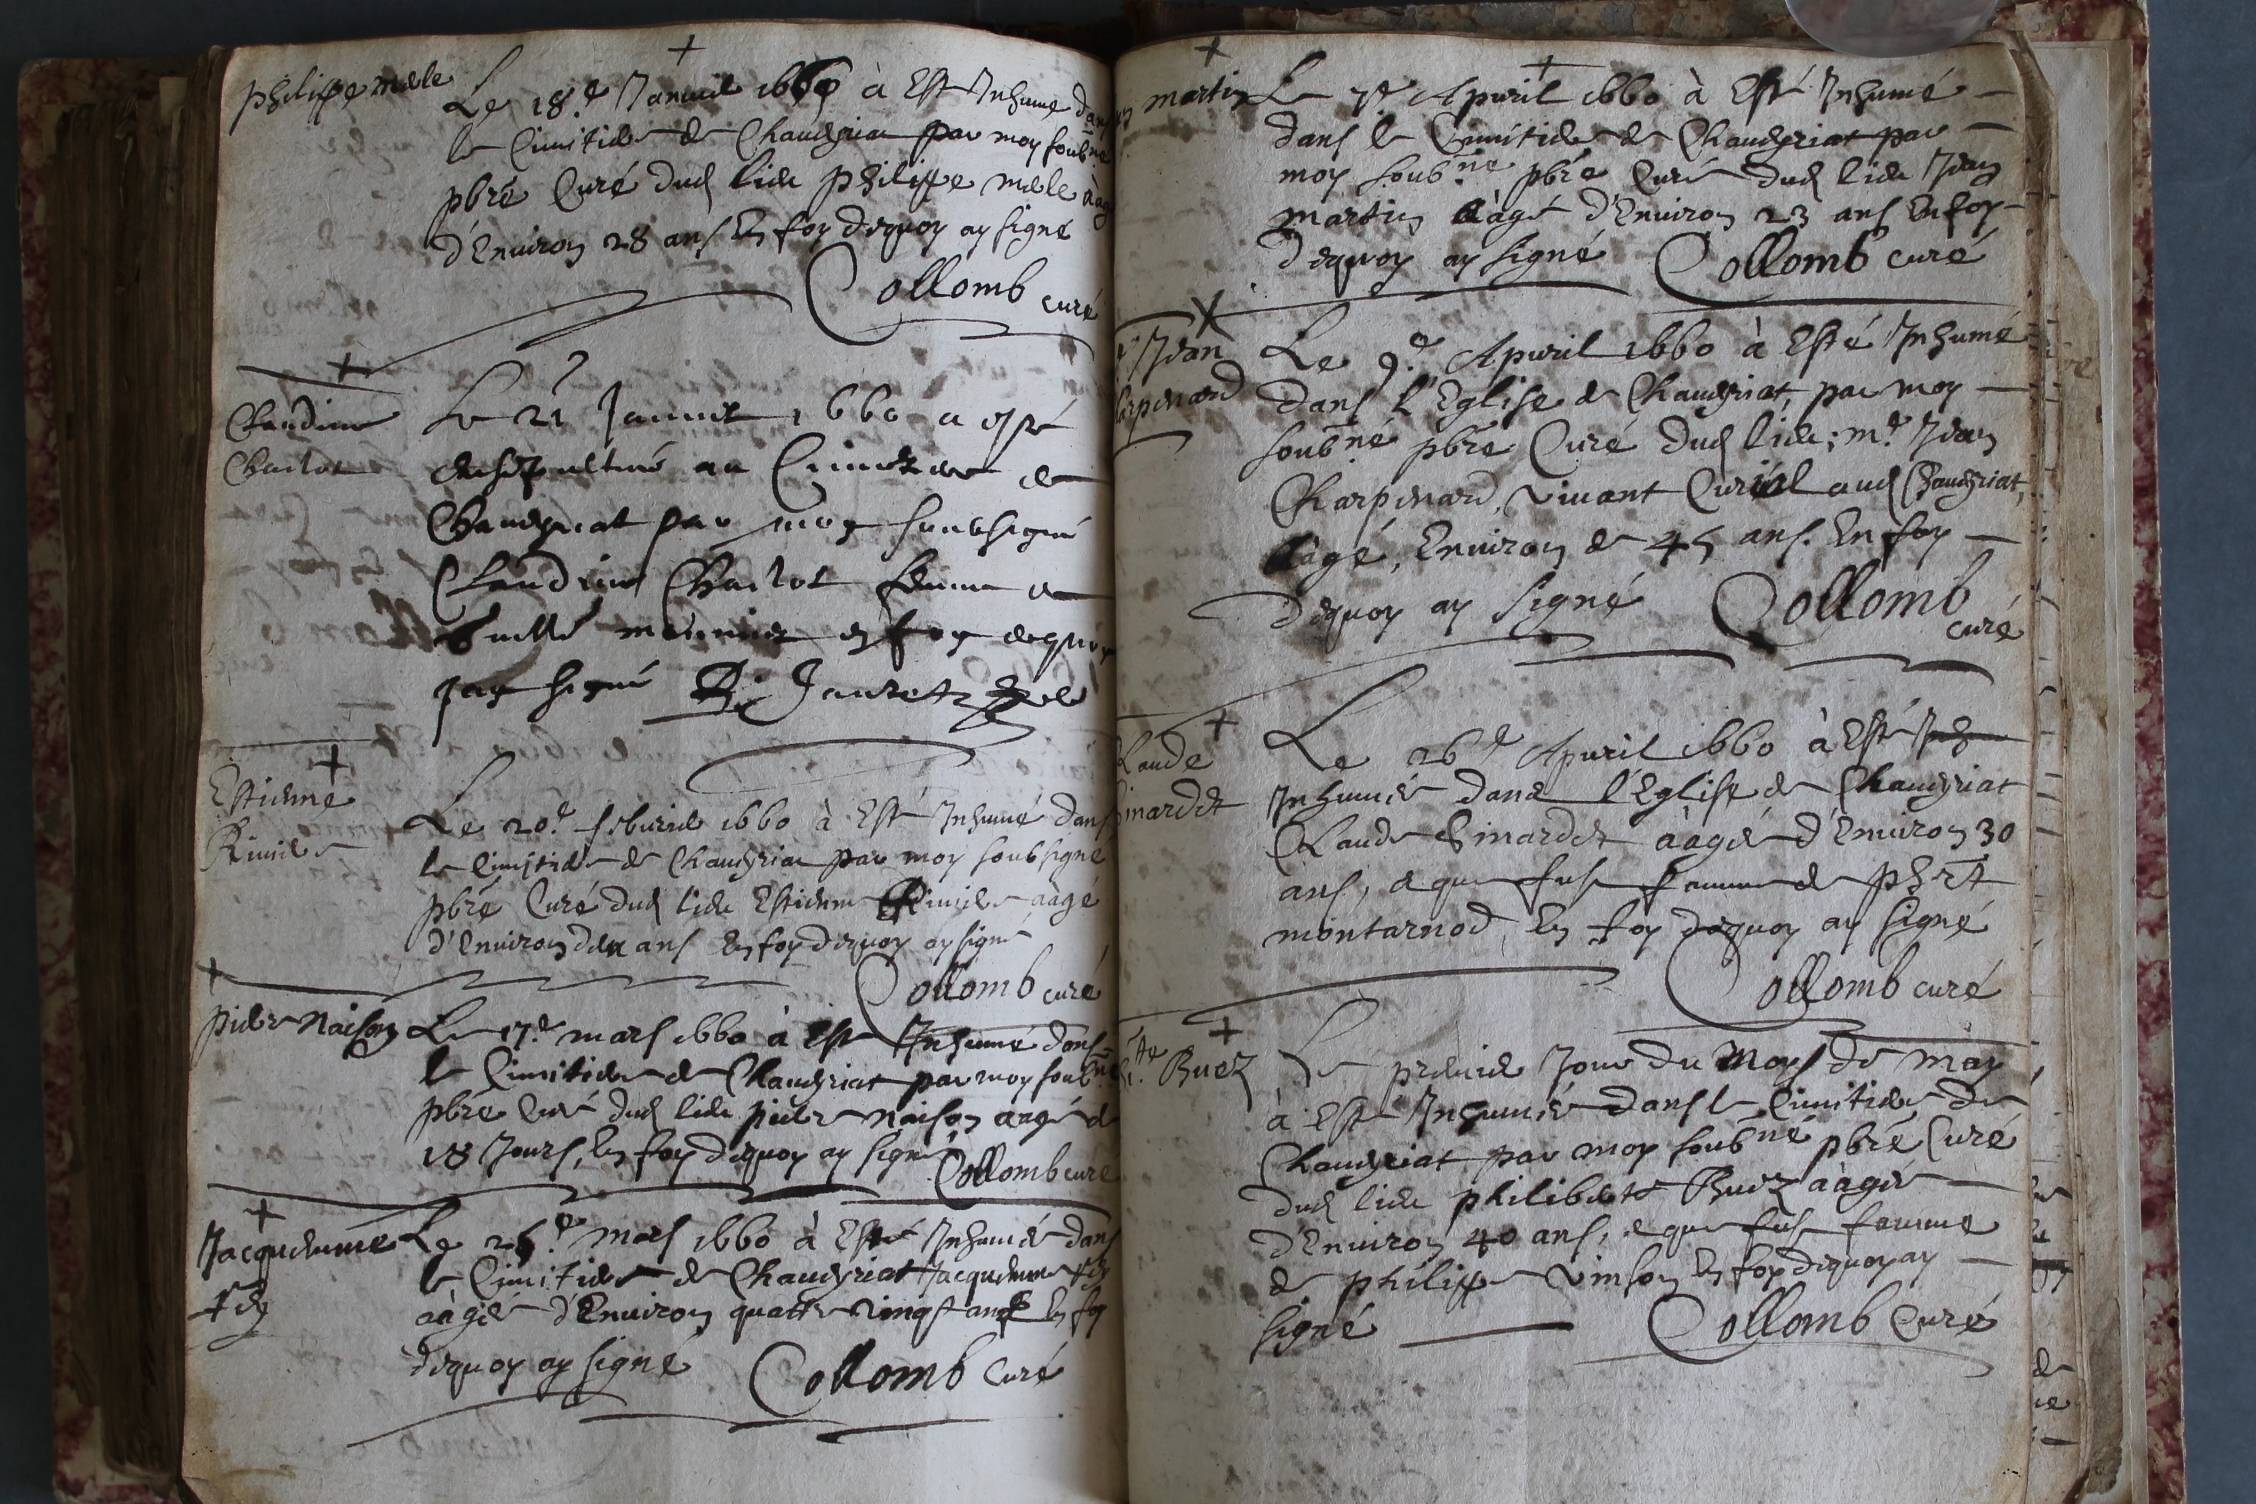 philippe mesle
Le 18.e Januier 1660 à Esté Inhumé dans
le Cimitiere de Chaueyriat par moy soubné
pbre Curé dud lieu philippe mesle àagé
d'Enuiron 28 ans En foy dequoy ay signé
Collomb curé
Claudine
Charlot
Le 21 Januier 1660 a esté
ensepulturé au Cimetiere de
Chaueyriat par moy soubsigné
Claudine Charlot femme de
meusnier en foy dequoy
jay signé
Estienne
Le 20.e feburier 1660 à Esté Inhumé dans
le Cimitiere de Chaueyriat par moy soubsigné
pbre Curé dud lieu Estienne àagé
d'Enuiron ans En foy dequoy ay signé
Collomb curé
pierre Naison
Le 17.e mars 1660 à Esté Inhumé dans
le Cimitiere de Chaueyriat par moy soubné
pbre Curé dud lieu pierre naison aagé de
18 Jours, En foy dequoy ay signé
Collomb curé
Jacquemme
fey
Le 26.e mars 1660 à Esté Inhumée dans
le Cimitiere de Chaueyriat Jacquemme fey
àagée d'Enuiron quattre vingt ans En foy
dequoy ay signé Collomb Curé
martin
Le 7.e Apuril 1660 à Esté Inhumé
dans le Cimitiere de Chaueyriat par
moy soubné pbre Curé dud lieu Jean
martin àagé d'Enuiron 23 ans En foy
dequoy ay signé Collomb curé
Jean
Charpenard
Le 9.e Apuril 1660 à Esté Inhumé
dans l'Eglise de Chaueyriat, par moy
soubné pbre Curé dud lieu; m.e Jean
Charpenard, viuant Curial aud Chaueyriat,
àagé, Enuiron de 45 ans. En foy
dequoy ay signé Collomb
curé
Claude
Le 26.e Apuril 1660 à Esté Inh
Inhumée dans l'Eglise de Chaueyriat
Claude àagée d'Enuiron 30
ans, & que fust femme de phert
montarnod, En foy dequoy ay signé
Collomb curé
Buez
Le premier Jour du Moys de may
à Esté Inhumée dans le Cimitiere de
Chaueyriat par moy soubné pbre Curé
dud lieu philiberte Buez àagée
d'Enuiron 40 ans, & que fust femme
de philippe vinson En foy dequoy ay
signé Collomb Curé